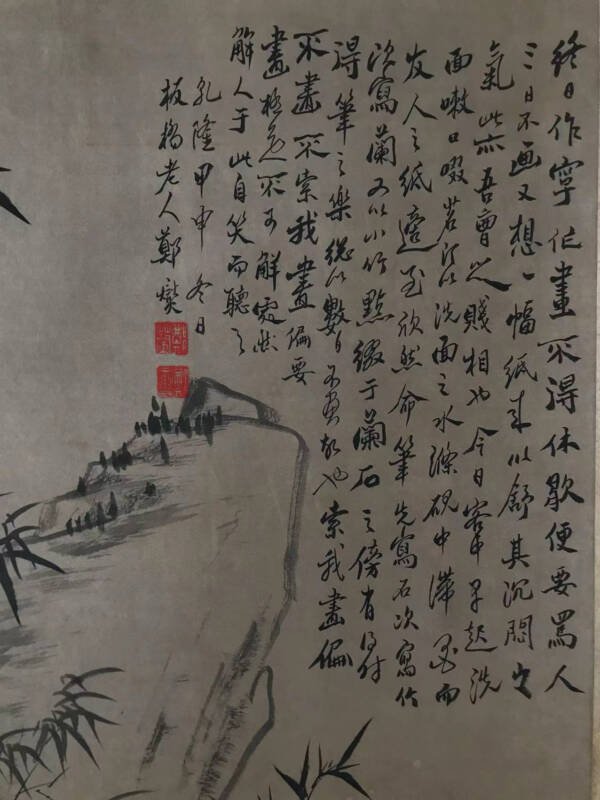 終日作字作畫不得休歇便要罵人
三日不画又想一幅紙來以舒其沉悶之
氣此亦吾曹之賤相也今日客中早起洗
面嗽口啜茗以洗面之水滌硯中滯墨而
友人之紙適至欣然命筆先寫石次寫竹
次寫蘭又以小竹點綴于蘭石之傍有得付
得筆之樂總以數日不畫故也索我畫偏
不畫不索我畫偏要
畫極是不可解處然
解人于此自笑而聽之
乹隆甲申冬日
板橋老人鄭燮